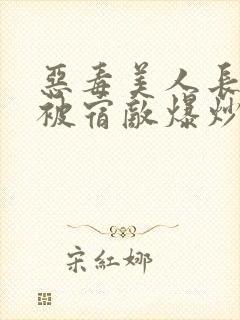 惡毒美人長
被宿敵爆炒
宋紅娜